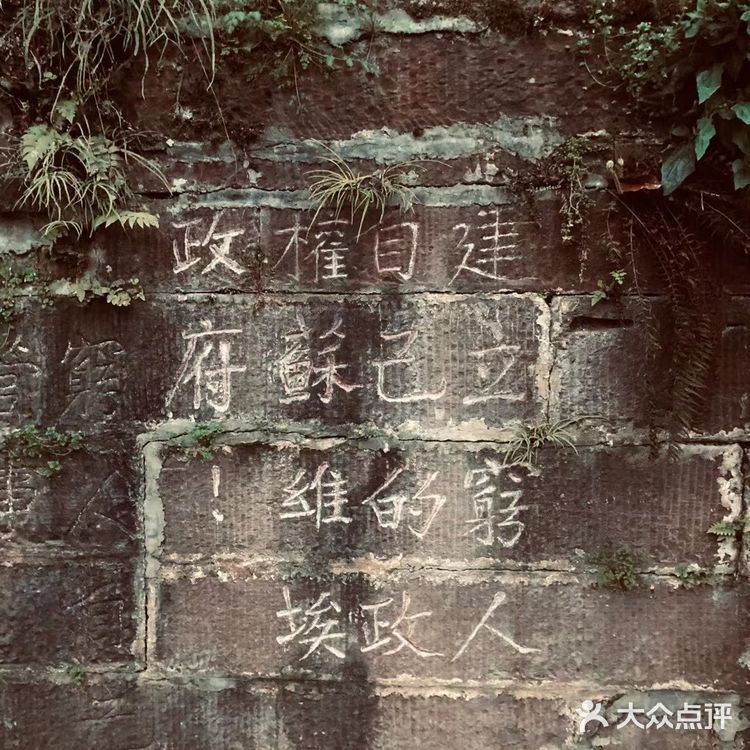 建立窮人
自己的政
權蘇維埃
政府！
窮人
大众点评